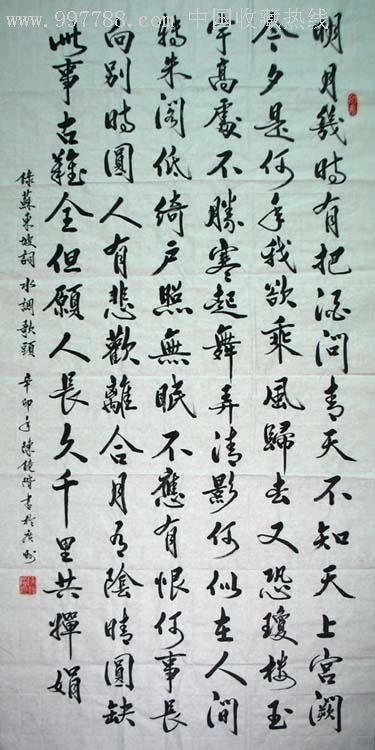 www.997788.com 中国收藏热线
明月幾時有把酒問青天不知天上宮闕
今夕是何年我欲乘風歸去又恐瓊樓玉
宇高處不勝寒起舞弄清影何似在人間
轉朱閣低綺戶照無眠不應有恨何事長
向別時圓人有悲歡離合月有陰晴圓缺
此事古難全但願人長久千里共嬋娟
錄蘇東坡詞水調歌頭 辛卯年陳書於廣州